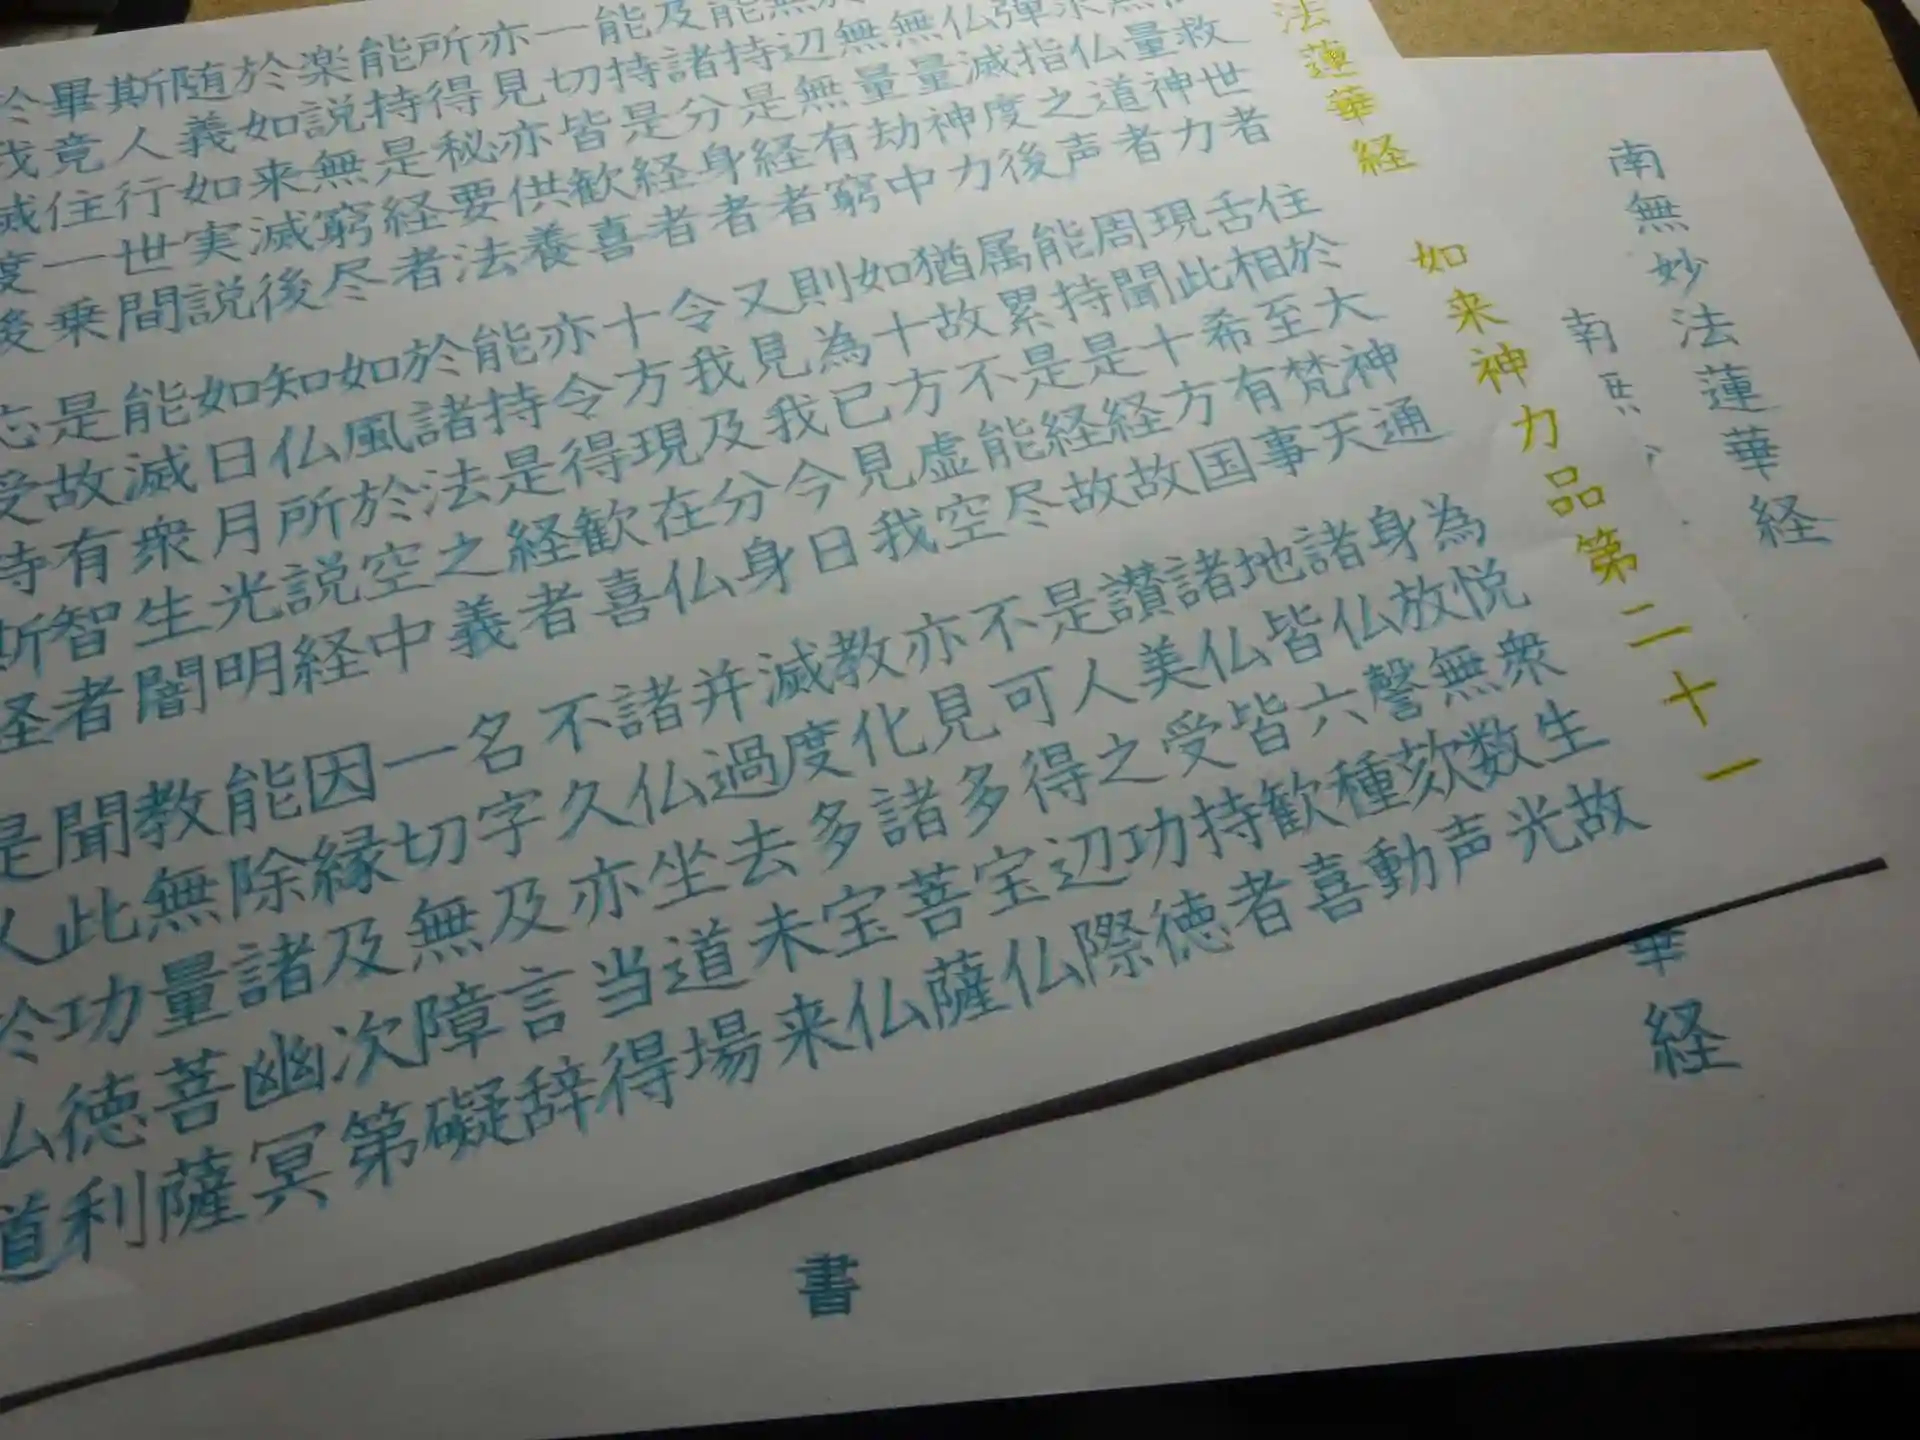 南無妙法蓮華経
南
華経
法蓮華経 如来神力品第二十一
救世者 住於大神通 為悦衆生故
量神力 舌相至梵天 身放無数光
仏道者 現此希有事 諸仏謦欬声
彈指之声 周聞十方国 地皆六種動
仏滅度後 能持是経故 諸仏皆歓喜
無量神力 属累是経故 讃美受持者
無量劫中 猶故不能尽 是人之功徳
辺無有窮 如十方虚空 不可得辺際
能持是経者 則為已見我 亦見多宝仏
及諸分身者 又見我今日 教化諸菩薩
能持是経者 令我及分身 滅度多宝仏
一切皆歓喜 十方現在仏 并過去未来
亦見亦供養 亦令得歓喜 諸仏坐道場
所得秘要法 能持是経者 不久亦当得
能持是経者 於諸法之義 名字及言辞
楽説無窮尽 如風於空中 一切無障礙
於如来滅後 知仏所説経 因縁及次第
随義如実説 如日月光明 能除諸幽冥
斯人行世間 能滅衆生闇 教無量菩薩
畢竟住一乗 是故有智者 聞此功徳利
於我滅度後 応受持斯経 是人於仏道
書